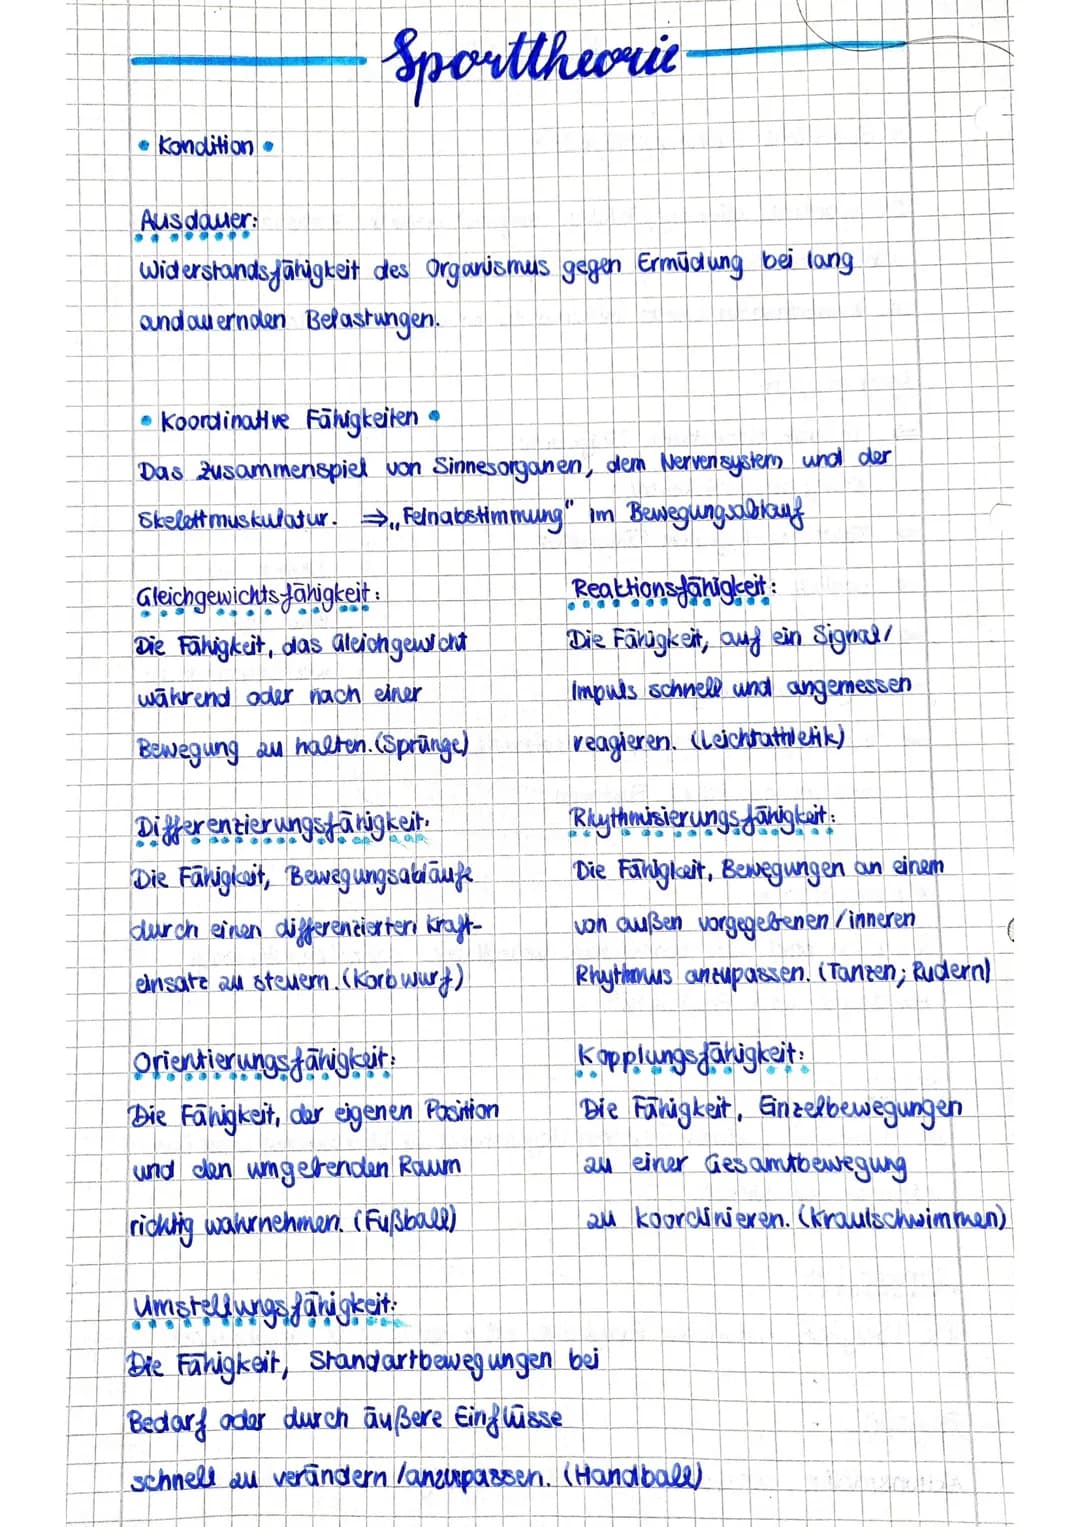 Sporttheorie
• Kondition •
Ausdauer:
Widerstandsfähigkeit des Organismus gegen Ermüdung bei lang
andauernden Belastungen.
• Koordinative Fähigkeiten •
Das Zusammenspiel von Sinnesorganen, dem Nervensystem und der
Skelettmuskulatur. ⇒ „Feinabstimmung" im Bewegungsablauf
Gleichgewichtsfähigkeit:
Die Fähigkeit, das Gleichgewicht
während oder nach einer
Bewegung zu halten. (Sprünge)
Reaktionsfähigkeit:
Die Fähigkeit, auf ein Signal/
Impuls schnell und angemessen
reagieren. (Leichtathletik)
Differenzierungsfähigkeit:
Die Fähigkeit, Bewegungsabläufe
durch einen differenzierten Kraft-
einsatz zu steuern. (Korbwurf)
Rhythmisierungsfähigkeit:
Die Fähigkeit, Bewegungen an einem
von außen vorgegebenen/inneren
Rhythmus anzupassen. (Tanzen; Rudern)
Orientierungsfähigkeit:
Die Fähigkeit, der eigenen Position
und den umgebenden Raum
richtig wahrnehmen. (Fußball)
Kopplungsfähigkeit:
Die Fähigkeit, Einzelbewegungen
zu einer Gesamtbewegung
zu koordinieren. (Kraulschwimmen)
Umstellungsfähigkeit:
Die Fähigkeit, Standartbewegungen bei
Bedarf oder durch äußere Einflüsse
schnell zu verändern/anzupassen. (Handball)